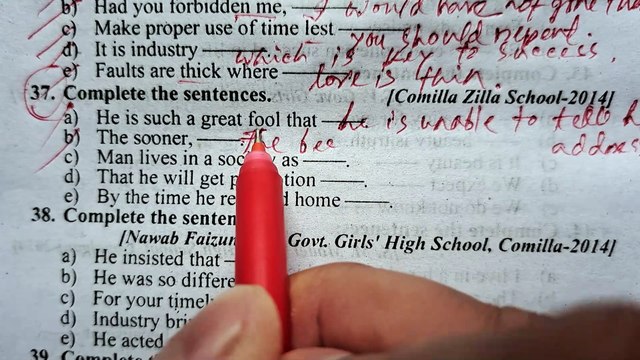 b) Had you forbidden me, — I would have not gone
c) Make proper use of time lest — you should repent.
d) It is industry — which is key to success,
e) Faults are thick where — love is thin.
37. Complete the sentences. [Comilla Zilla School-2014]
a) He is such a great fool that — he is unable to tell h
address
b) The sooner, — the bee
c) Man lives in a as —.
d) That he will get —.
e) By the time he home —
38. Complete the
[Nawab Govt. Girls' High School, Comilla-2014]
a) He insisted that
b) He was so
c) For your
d) Industry
e) He acted
39.